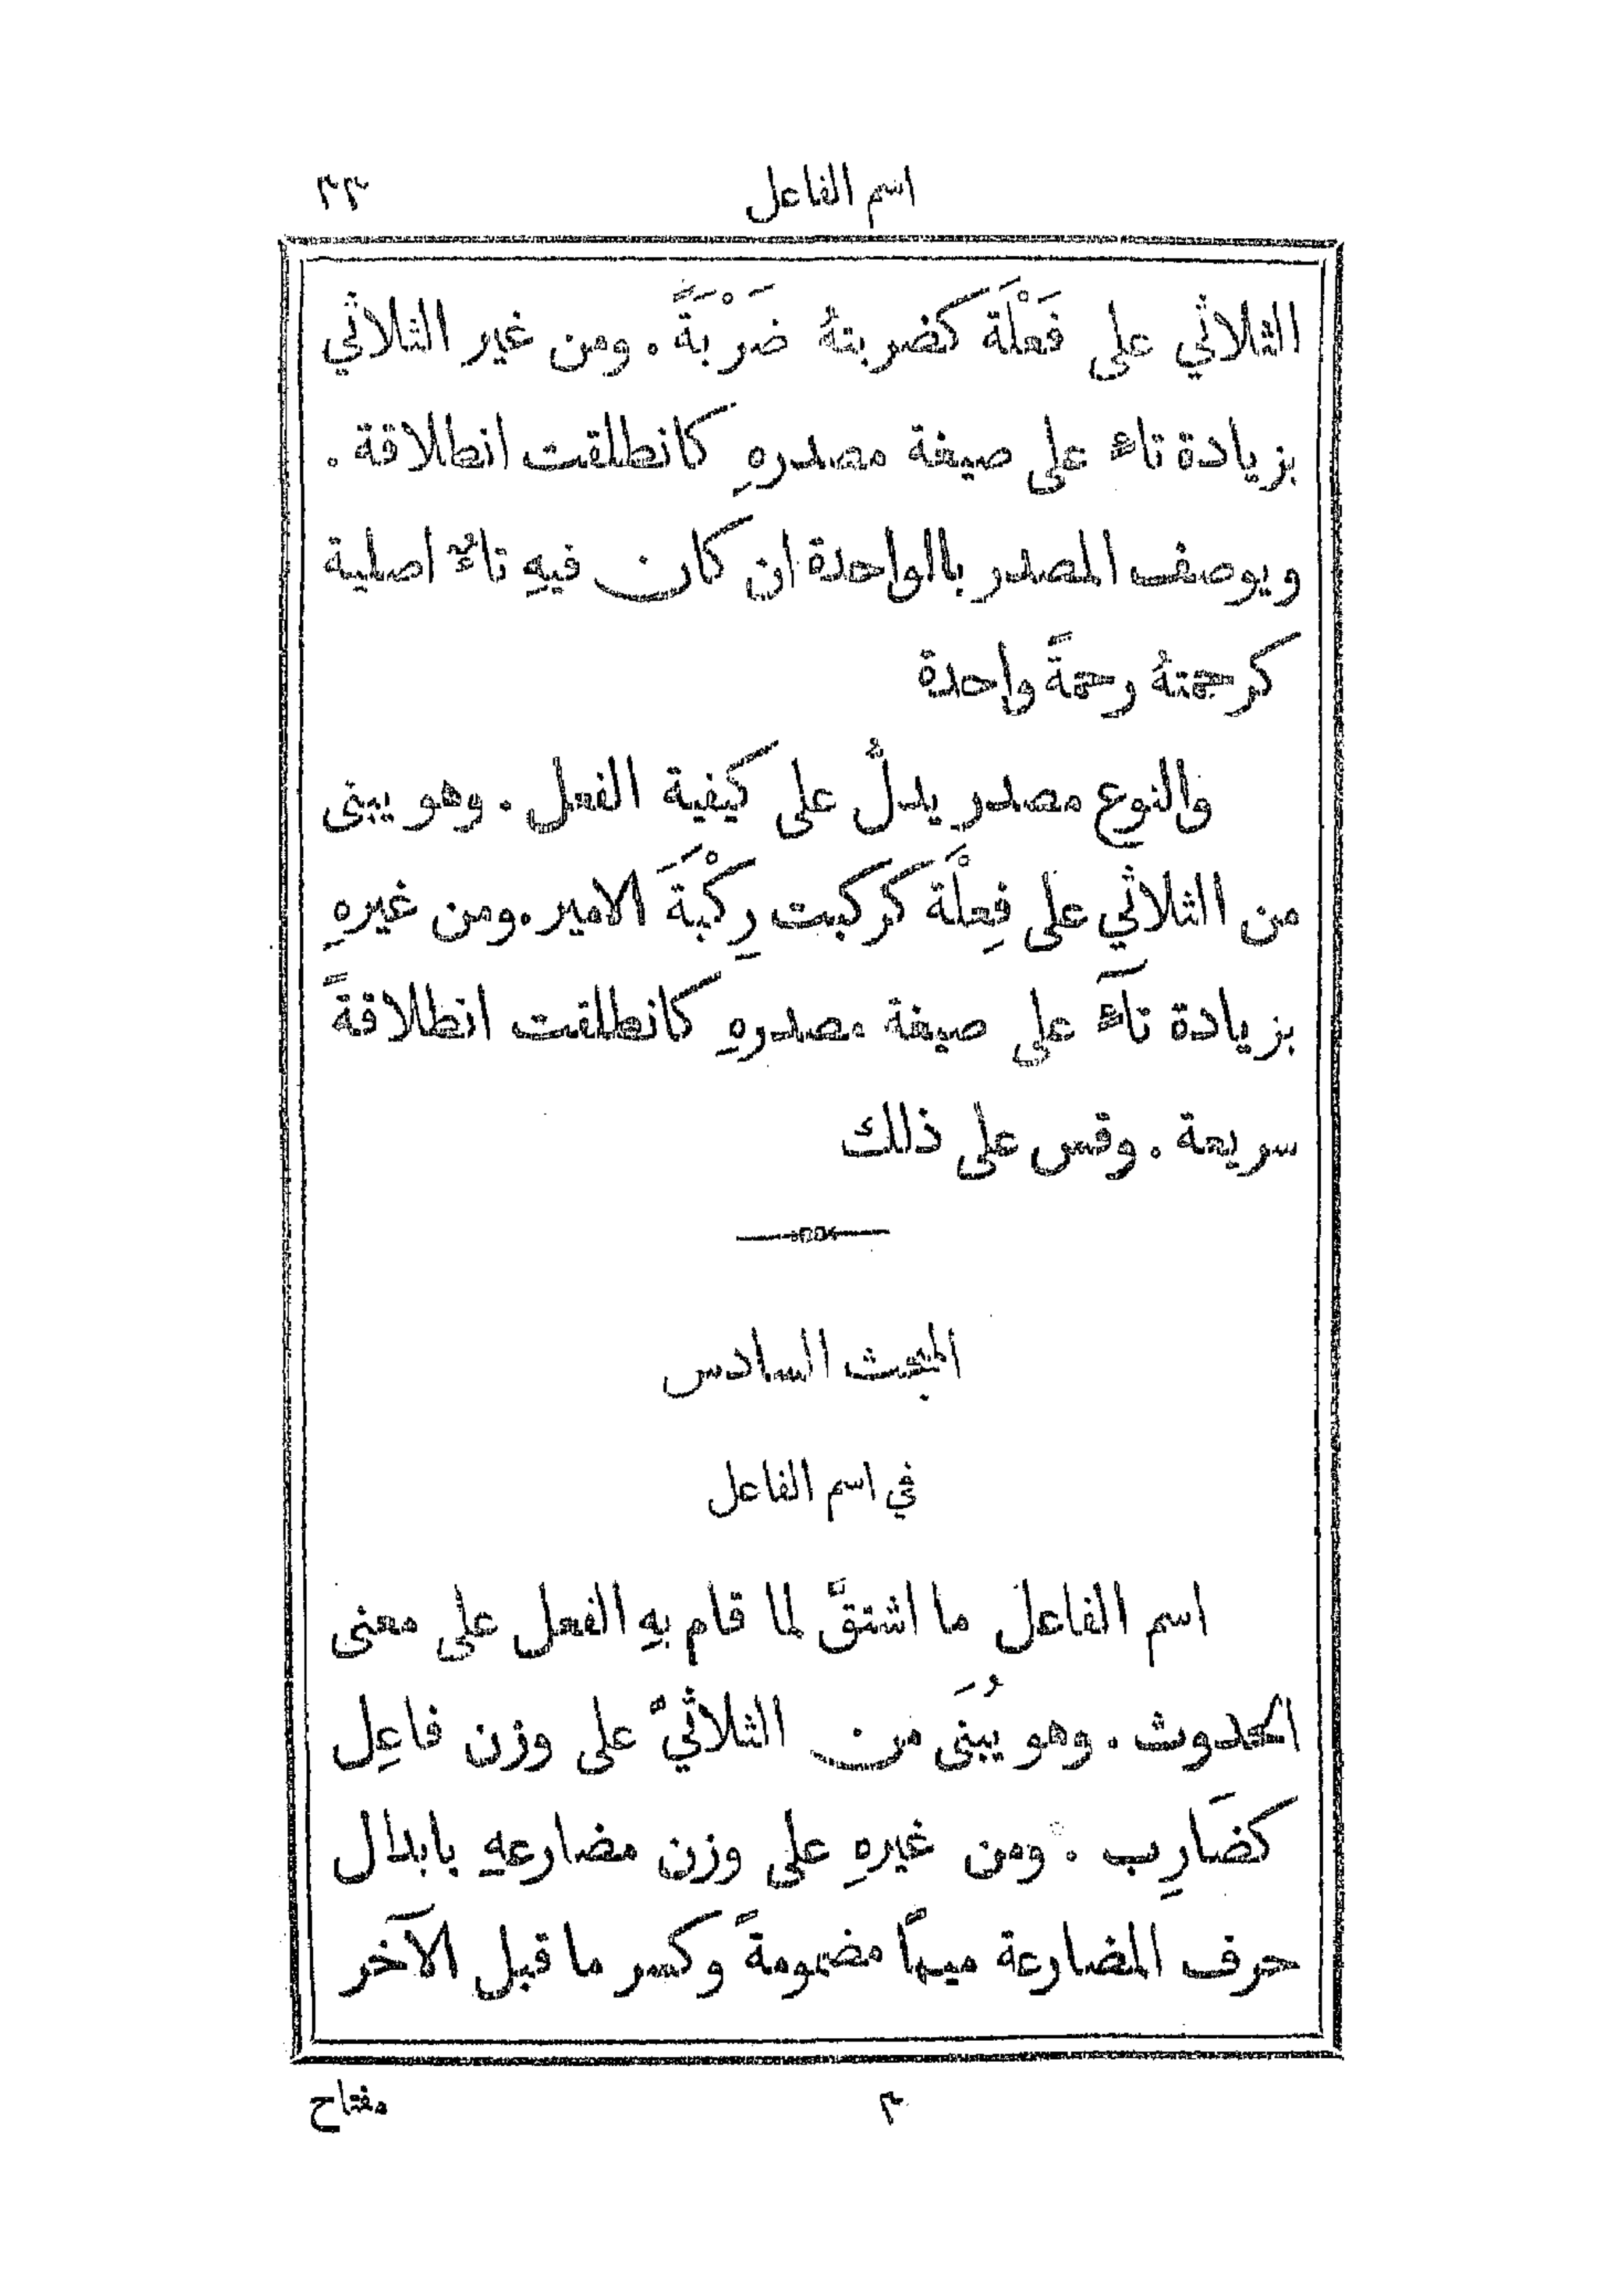 اسم الفاعل ٣٣
الثلاثي على فَعْلَة كضربتهُ ضَرْبَةً . ومن غير الثلاثي
بزيادة تاءٍ على صيغة مصدرهِ كانطلقت انطلاقة .
ويوصف المصدر بالواحدة ان كان فيهِ تاءٌ اصلية
كرحمتهُ رحمةً واحدة
والنوع مصدر يدلُّ على كيفية الفعل . وهو يبنى
من الثلاثي على فِعْلَة كركبت رِكْبَةَ الامير . ومن غيرهِ
بزيادة تآءٍ على صيغة مصدرهِ كانطلقت انطلاقةً
سريعة . وقس على ذلك
المبحث السادس
في اسم الفاعل
اسم الفاعل ما اشتقَّ لما قام بهِ الفعل على معنى
الحدوث . وهو يُبنَى من الثلاثيّ على وزن فاعِل
كضَارِب . ومن غيرهِ على وزن مضارعهِ بابدال
حرف المضارعة ميمًا مضمومةً وكسر ما قبل الآخر
٣ مفتاح